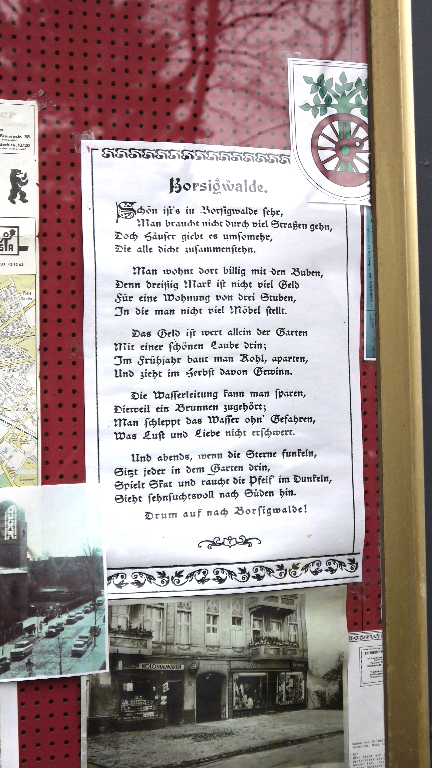 Borsigwalde.
Schön ist's in Borsigwalde sehr,
Man braucht nicht durch viel Straßen gehn,
Doch Häuser giebt es umsomehr,
Die alle dicht zusammenstehn.
Man wohnt dort billig mit den Buben,
Denn dreißig Mark ist nicht viel Geld
Für eine Wohnung von drei Stuben,
In die man nicht viel Möbel stellt.
Das Geld ist wert allein der Garten
Mit einer schönen Laube drin;
Im Frühjahr baut man Kohl, aparten,
Und zieht im Herbst davon Gewinn.
Die Wasserleitung kann man sparen,
Dieweil ein Brunnen zugehört;
Man schleppt das Wasser ohn' Gefahren,
Was Lust und Liebe nicht erschwert.
Und abends, wenn die Sterne funkeln,
Sitzt jeder in dem Garten drin,
Spielt Skat und raucht die Pfeif' im Dunkeln,
Sieht sehnsuchtsvoll nach Süden hin.
Drum auf nach Borsigwalde!